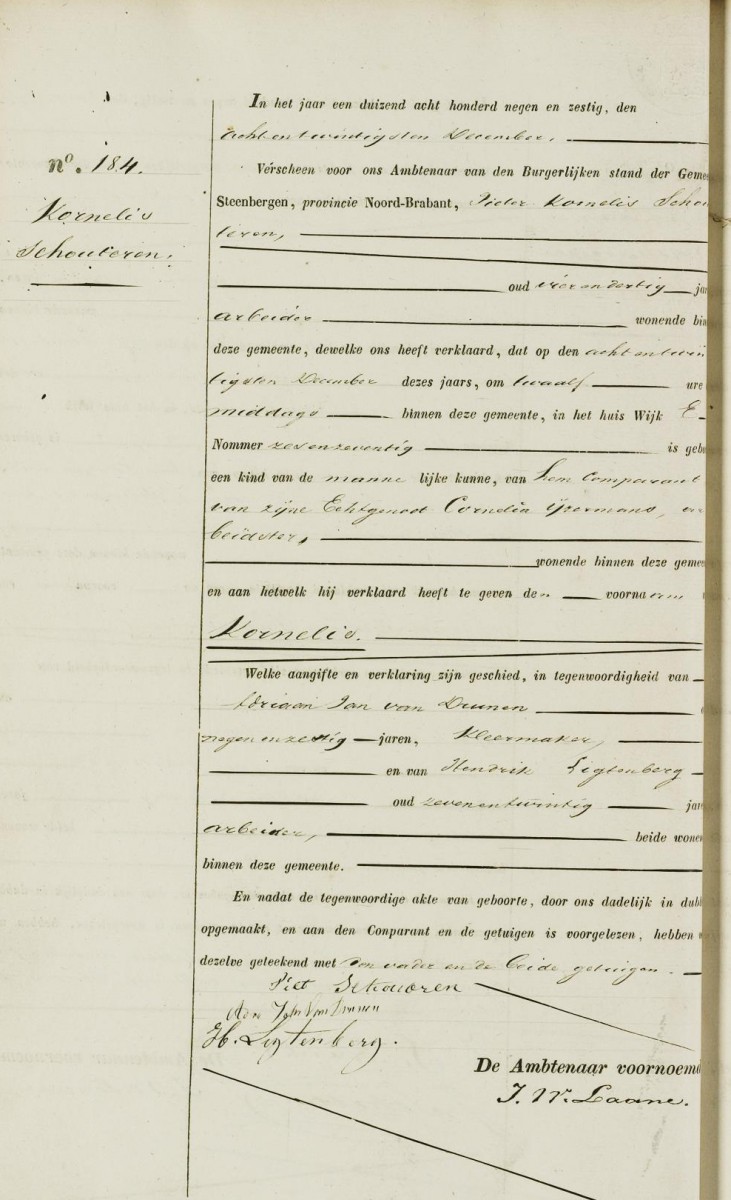 nº. 184.
Kornelis
Schouteren.
In het jaar een duizend acht honderd negen en zestig, den
achtentwindigsten December.
Verscheen voor ons Ambtenaar van den Burgerlijken stand der Gemee
Steenbergen, provincie Noord-Brabant, Pieter Kornelis Schou
teren,
oud vierendertig ja
arbeider wonende bin
deze gemeente, dewelke ons heeft verklaard, dat op den achtentwin
tigsten December dezes jaars, om twaalf ure
middags binnen deze gemeente, in het huis Wijk E
Nommer zevenzeventig is gebo
een kind van de manne lijke kunne, van hem Comparant
van zijne Echtgenoot Cornelia Ypermans, ar
beidster,
wonende binnen deze gemee
en aan hetwelk hij verklaard heeft te geven de voorna
Kornelis.
Welke aangifte en verklaring zijn geschied, in tegenwoordigheid van
Adriaan Jan van Dunnen
negenenzestig jaren, Kleermaker,
en van Hendrik Ligtenberg
oud zevenentwintig jar
arbeider, beide wonen
binnen deze gemeente.
En nadat de tegenwoordige akte van geboorte, door ons dadelijk in dubb
opgemaakt, en aan den Conparant en de getuigen is voorgelezen, hebben
dezelve geteekend met den vader en de beide getuigen.
Piet Schouoren
H. Ligtenberg.
De Ambtenaar voornoemd
J. W. Laane.